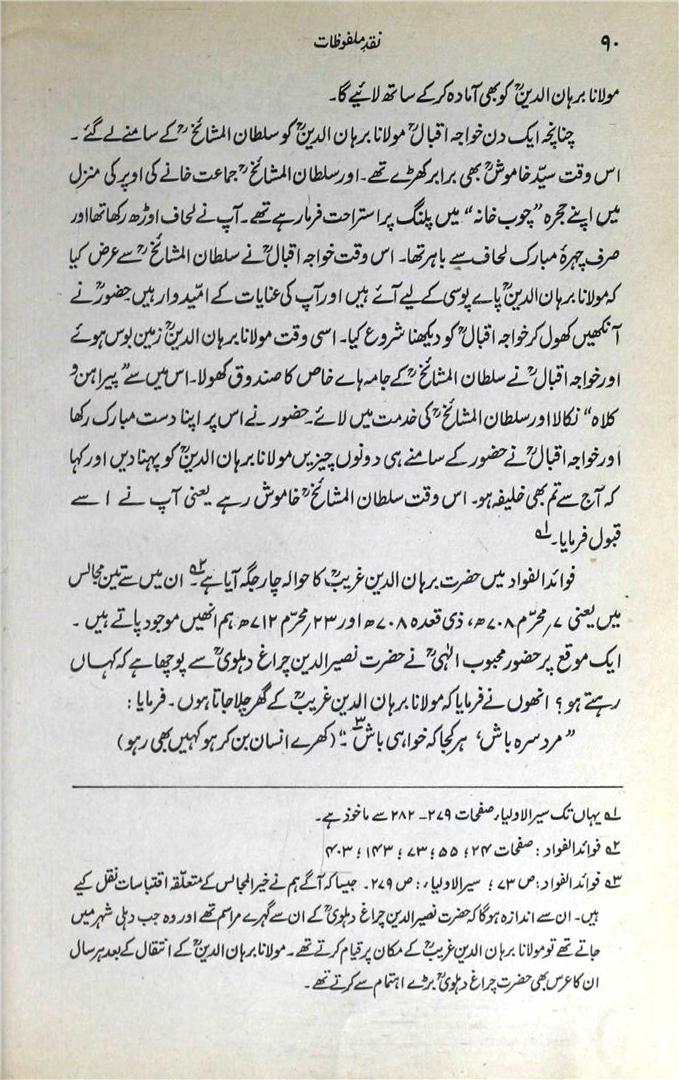 ۹۰
نقدِ ملفوظات
مولانا برہان الدینؒ کو بھی آمادہ کر کے ساتھ لائیے گا۔
چنانچہ ایک دن خواجہ اقبالؒ مولانا برہان الدینؒ کو سلطان المشائخؒ کے سامنے لے گئے۔
اس وقت سیّد خاموشؒ بھی برابر کھڑے تھے۔ اور سلطان المشائخؒ جماعت خانے کی اوپر کی منزل
میں اپنے حجرہ ”چوب خانہ“ میں پلنگ پر استراحت فرما رہے تھے۔ آپ نے لحاف اوڑھ رکھا تھا اور
صرف چہرۂ مبارک لحاف سے باہر تھا۔ اس وقت خواجہ اقبالؒ نے سلطان المشائخؒ سے عرض کیا
کہ مولانا برہان الدینؒ پاے بوسی کے لیے آئے ہیں اور آپ کی عنایات کے امیدوار ہیں حضورؒ نے
آنکھیں کھول کر خواجہ اقبالؒ کو دیکھنا شروع کیا۔ اسی وقت مولانا برہان الدینؒ زمین بوس ہوئے
اور خواجہ اقبالؒ نے سلطان المشائخؒ کے جامہ ہاے خاص کا صندوق کھولا۔ اس میں سے ”پیراہن و
کلاہ“ نکالا اور سلطان المشائخؒ کی خدمت میں لائے۔ حضور نے اس پر اپنا دست مبارک رکھا
اور خواجہ اقبالؒ نے حضور کے سامنے ہی دونوں چیزیں مولانا برہان الدینؒ کو پہنا دیں اور کہا
کہ آج سے تم بھی خلیفہ ہو۔ اس وقت سلطان المشائخؒ خاموش رہے یعنی آپ نے اسے
قبول فرمایا۔ ۱ھ
فوائد الفواد میں حضرت برہان الدین غریبؒ کا حوالہ چار جگہ آیا ہے۔ ۲ھ ان میں سے تین مجالس
میں یعنی ۷؍محرّم ۷۰۸ھ، ذی قعدہ ۷۰۸ھ اور ۲۳؍محرّم ۷۱۲ھ ہم انھیں موجود پاتے ہیں۔
ایک موقع پر حضور محبوب الٰہیؒ نے حضرت نصیر الدین چراغ دہلویؒ سے پوچھا ہے کہ کہاں
رہتے ہو؟ انھوں نے فرمایا کہ مولانا برہان الدین غریبؒ کے گھر چلا جاتا ہوں۔ فرمایا:
”مرد سرہ باش، ہر کجا کہ خواہی باش ۳۔“ (کھرے انسان بن کر ہو کہیں بھی رہو)
۱ھ یہاں تک سیر الاولیاء صفحات ۲۷۹۔۲۸۲ سے ماخوذ ہے۔
۲ھ فوائد الفواد: صفحات ۲۴؛ ۵۵؛ ۷۳؛ ۱۴۳؛ ۴۰۳
۳ھ فوائد الفواد: ص ۷۳؛ سیر الاولیاء: ص ۲۷۹۔ جیسا کہ آگے ہم نے خیر المجالس کے متعلقہ اقتباسات نقل کیے
ہیں۔ ان سے اندازہ ہوگا کہ حضرت نصیر الدین چراغ دہلویؒ کے ان سے گہرے مراسم تھے اور وہ جب دہلی شہر میں
جاتے تھے تو مولانا برہان الدین غریبؒ کے مکان پر قیام کرتے تھے۔ مولانا برہان الدینؒ کے انتقال کے بعد ہر سال
ان کا عرس بھی حضرت چراغ دہلویؒ بڑے اہتمام سے کرتے تھے۔